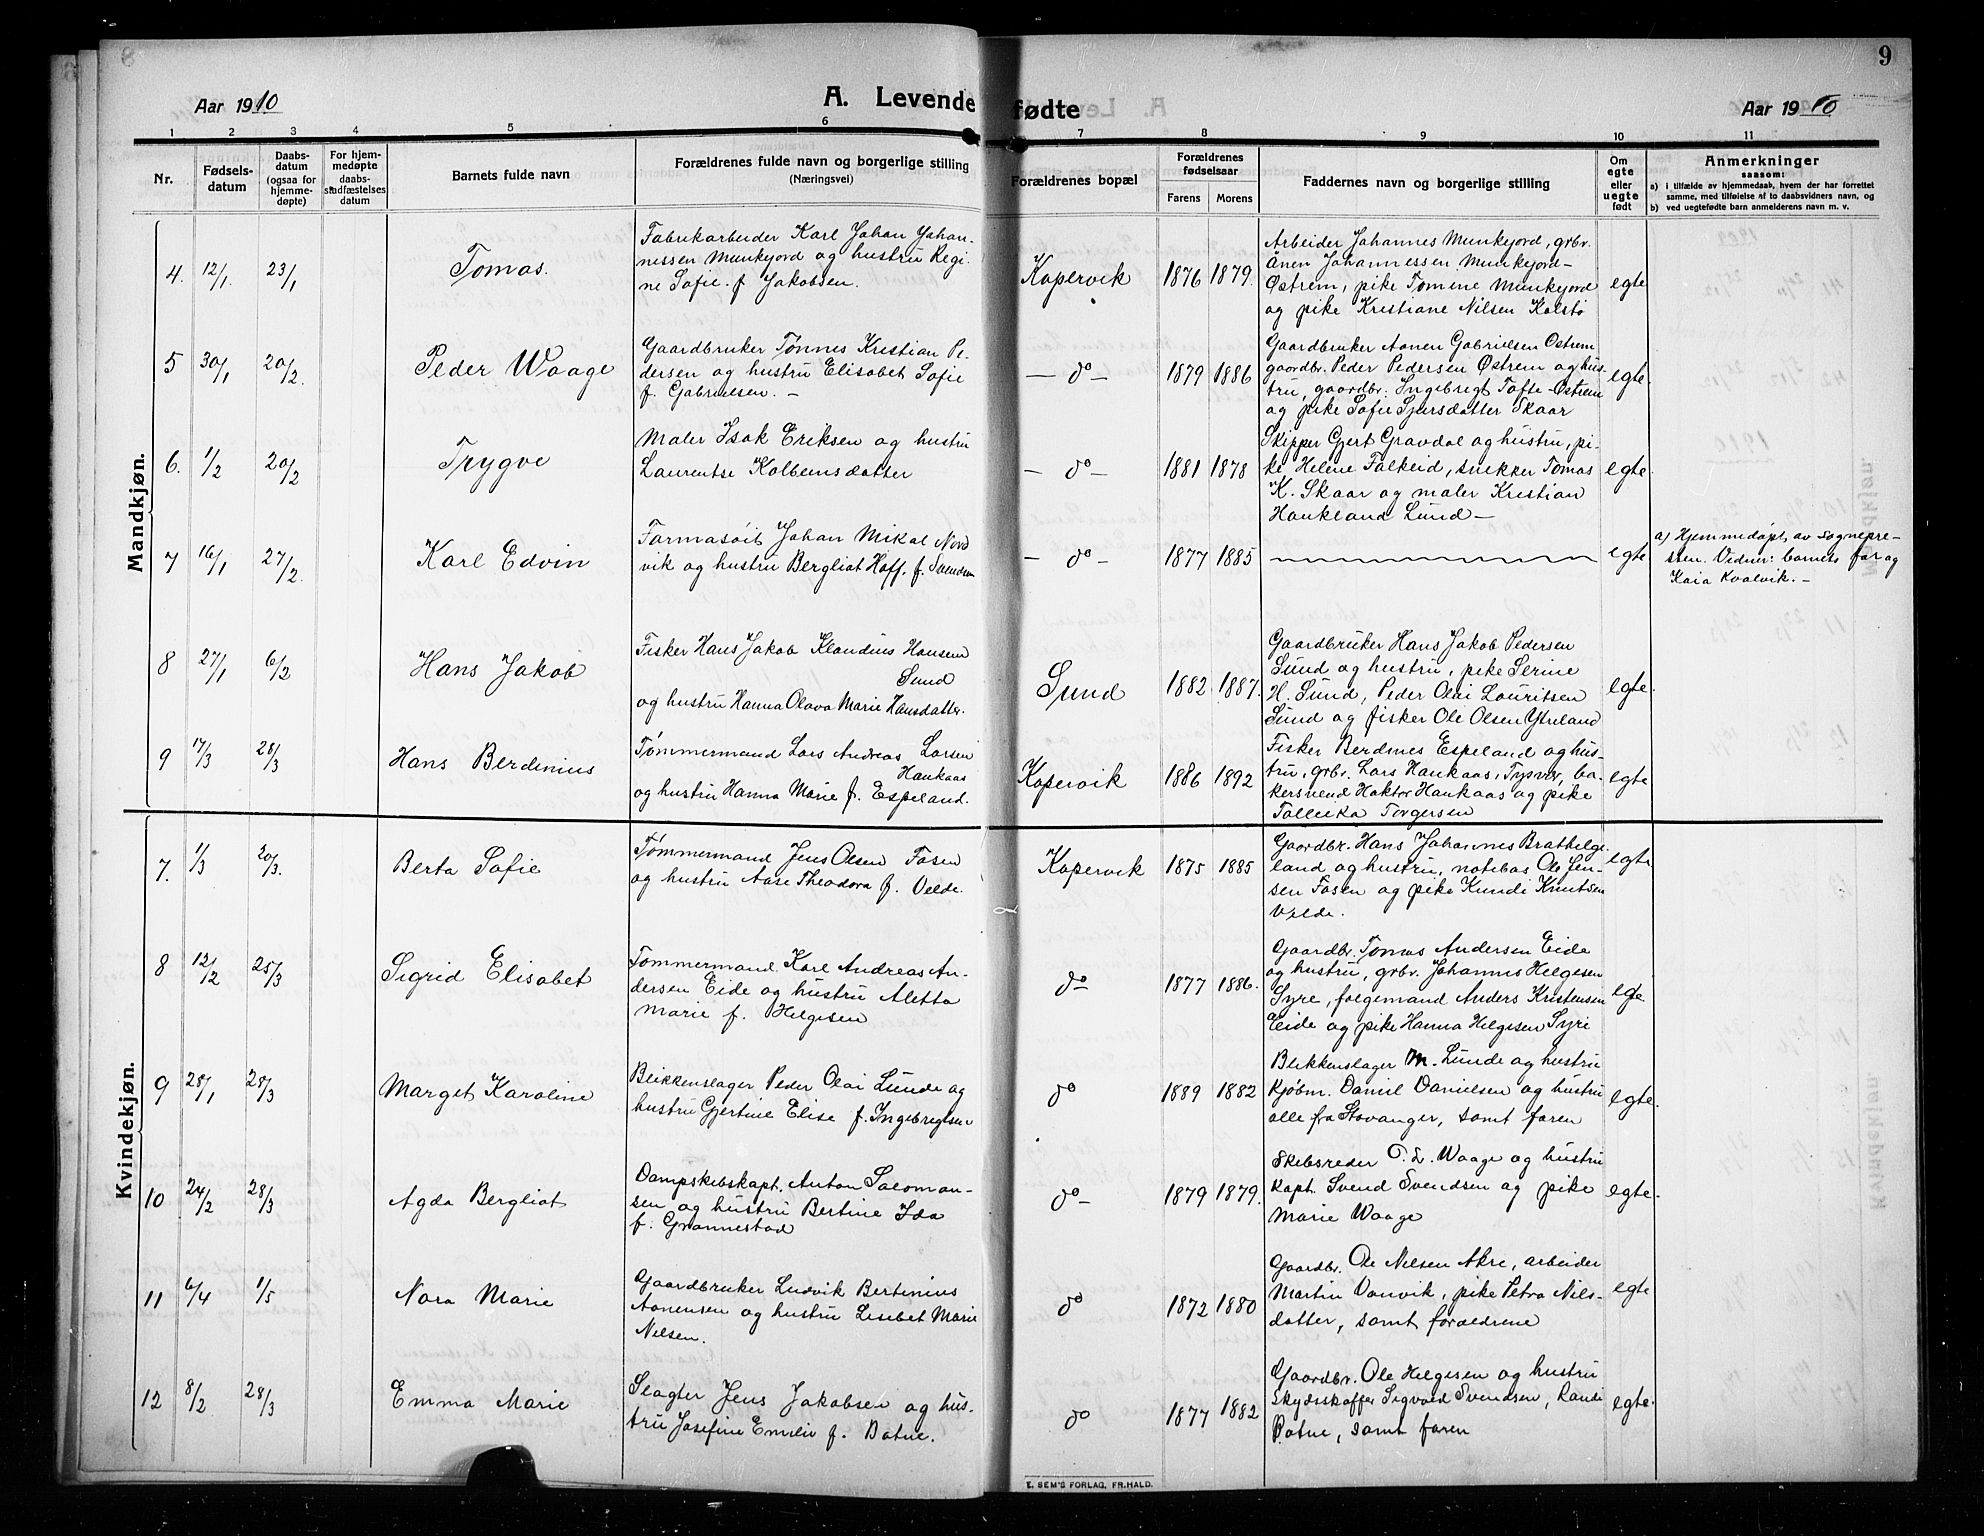 9
Aar 1910
A. Levende fødte
Aar 1910
1 2 3 4 5 6 7 8 9 10 11
Nr.
Fødsels-
datum
Daabs-
datum
(ogsaa for
hjemme-
døpte)
For hjem-
medøpte
daabs-
stadfæstelses
datum
Barnets fulde navn
Forældrenes fulde navn og borgerlige stilling
(Næringsvei)
Forældrenes bopæl
Forældrenes
fødselsaar
Farens Morens
Faddernes navn og borgerlige stilling
Om
egte
eller
uegte
født
Anmerkninger
saasom:
a) i tilfælde av hjemmedaab, hvem der har forrettet
samme, med tilføielse af to daabsvidners navn, og
b) ved uegtefødte barn anmelderens navn m. v.
Mandkjøn.
4. 12/1. 23/1 Tomas.
Fabrikarbeider Karl Johan Johan-
nessen Munkejord og hustru Regi-
ne Sofie f. Jakobsen.
Kopervik 1876 1879.
Arbeider Johannes Munkejord, grbr.
Ånen Johannessen Munkejord-
Østrem, pike Tomine Munkejord
og pike Kristiane Nilsen Kolstø
egte
5 30/1 20/2. Peder Waage
Gaardbruker Tønnes Kristian Pe-
dersen og hustru Elisabet Sofie
f. Gabrielsen. —
— do — 1879 1886
Gaardbruker Aanen Gabrielsen Østrem
gaardbr. Peder Pedersen Østrem og hus-
tru, gaardbr. Ingebrigt Tofte-Østrem
og pike Sofie Sjursdatter Skaar
egte
6. 1/2 20/2 Trygve
Maler Isak Eriksen og hustru
Laurentse Kolbensdatter
— do — 1881 1878
Skipper Gjert Gravdal og hustru, pi-
ke Helene Falkeid, snekker Tomas
K. Skaar og maler Kristian
Haukland Lund —
egte.
7 16/1 27/2. Karl Edvin
Farmasøit Johan Mikal Nord
vik og hustru Bergliot Hoff. f. Svendsen
— do — 1877 1885
egte
a) Hjemmedøpt av sognepre-
sten. Vidner: barnets far og
Kaia Kvalvik. —
8 27/1 6/2 Hans Jakob
Fisker Hans Jakob Klaudius Hansen
Sund
og hustru Hanna Olava Marie Hansdatter.
Sund 1882 1887.
Gaardbruker Hans Jakob Pedersen
Sund og hustru, pike Serine
H. Sund, Peder Olai Lauritsen
Sund og fisker Ole Olsen Ytreland
egte.
9 17/3 28/3 Hans Berdinius
Tømmermand Lars Andreas Larsen
Haukaas
og hustru Hanna Marie f. Espeland.
Kopervik 1886 1892
Fisker Berdines Espeland og hus-
tru, grbr. Lars Haukaas, Tysvær, ba-
kersvend Haktor Haukaas og pike
Torgersen
egte
Kvindekjøn.
7. 1/3 20/3. Berta Sofie
Tømmermand Jens Olsen Fosen
og hustru Aase Theodora f. Velde.
Kopervik 1875 1885
Gaardbr. Hans Johannes Bratthelge-
land og hustru, notebas Ole Jen-
sen Fosen og pike Kundi Knutsen
Velde.
egte
8 12/2 25/3 Sigrid Elisabet
Tømmermand Karl Andreas An-
dersen Eide og hustru Aletta
Marie f. Helgesen
do 1877 1886.
Gaardbr. Tomas Andersen Eide
og hustru, grbr. Johannes Helgesen
Syre, folgemand Anders Kristensen
Eide og pike Hanna Helgesen Syre
egte
9 28/1 28/3 Marget Karoline
Blikkenslager Peder Olai Lunde og
hustru Gjertine Elise f. Ingebregtsen
do 1889 1882
Blikkenslager M. Lunde og hustru
Kjøbm. Daniel Danielsen og hustru
alle fra Stavanger, samt faren
egte.
10 24/2 28/3 Agda Bergliot
Dampskibskapt. Anton Salomon-
sen og hustru Bertine Ida
f. Grannestad
do — 1879 1879.
Skibsreder T. L. Waage og hustru
Kapt. Svend Svendsen og pike
Marie Waage
egte.
11 6/4 1/5 Nora Marie
Gaardbruker Ludvik Bertinius
Aanensen og hustru Lisebet Marie
Nilsen.
do 1872 1880
Gaardbr. Ole Nilsen Akre, arbeider
Martin Vanvik, pike Petra Nils-
datter, samt foreldrene
egte
12 8/2 28/3 Emma Marie
Slagter Jens Jakobsen og hus-
tru Josefine Emilie f. Botne.
do 1877 1882
Gaardbr. Ole Helgesen og hustru
Skydsskaffer Sigvald Svendsen, Randi
Botne, samt faren
egte.
E. SEM'S FORLAG, FR.HALD.